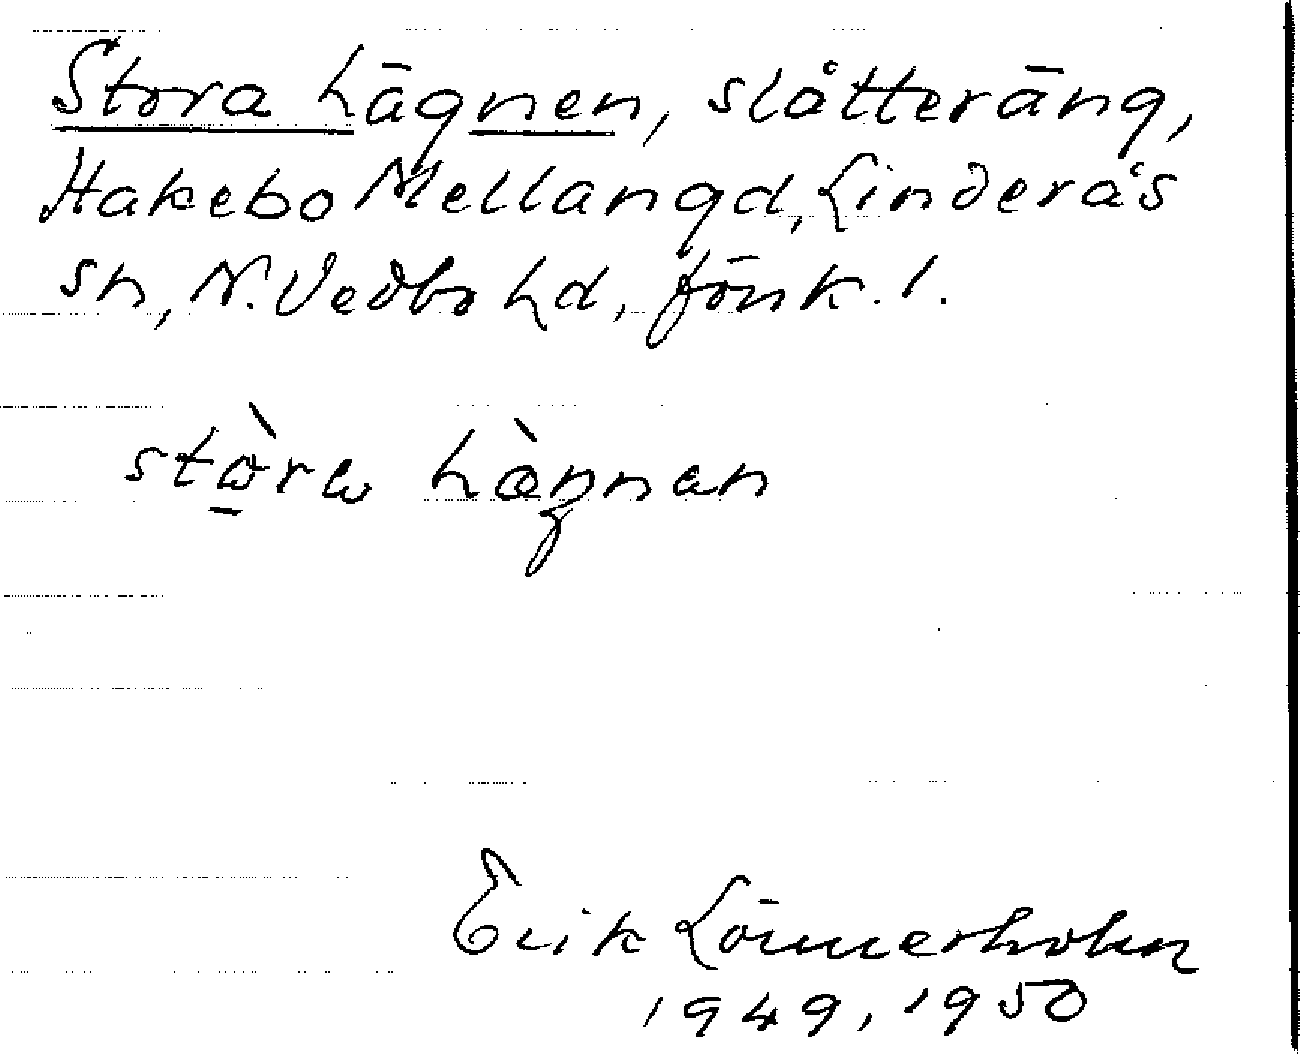 Stora hägnen, slåtteräng,
Hakebo Mellangd, Linderås
sn, N. Vedbo hd, Jönk. l.
stὼ̱rω hæ̀ŋnan
Erik Lönnerholm
1949, 1950